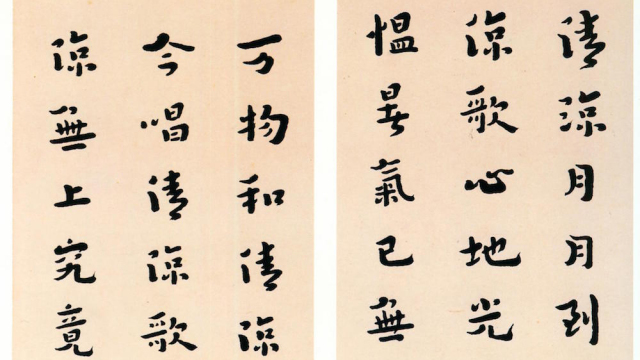 清涼月月到
涼歌心地光
愠暑氣已無
万物和清涼
今唱清涼歌
涼無上究竟